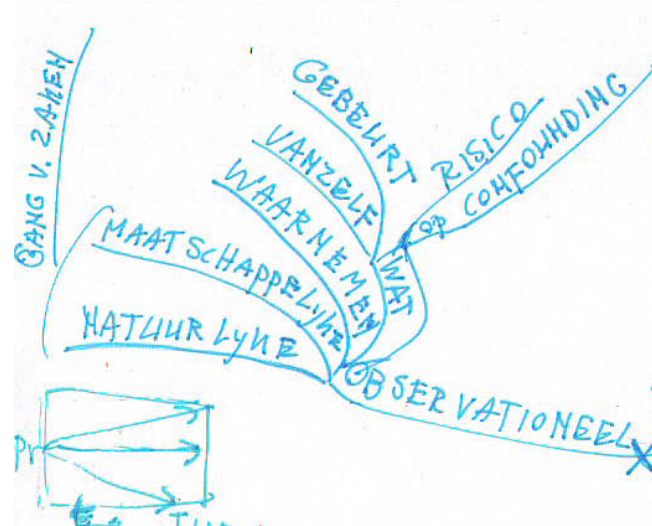 GANG V. ZAKEN
GEBEURT
VANZELF
WAARNEMEN
WAT
RISICO
op COMFOUNDING
MAATSCHAPPELIJKE
NATUURLYKE
OBSERVATIONEEL
pr